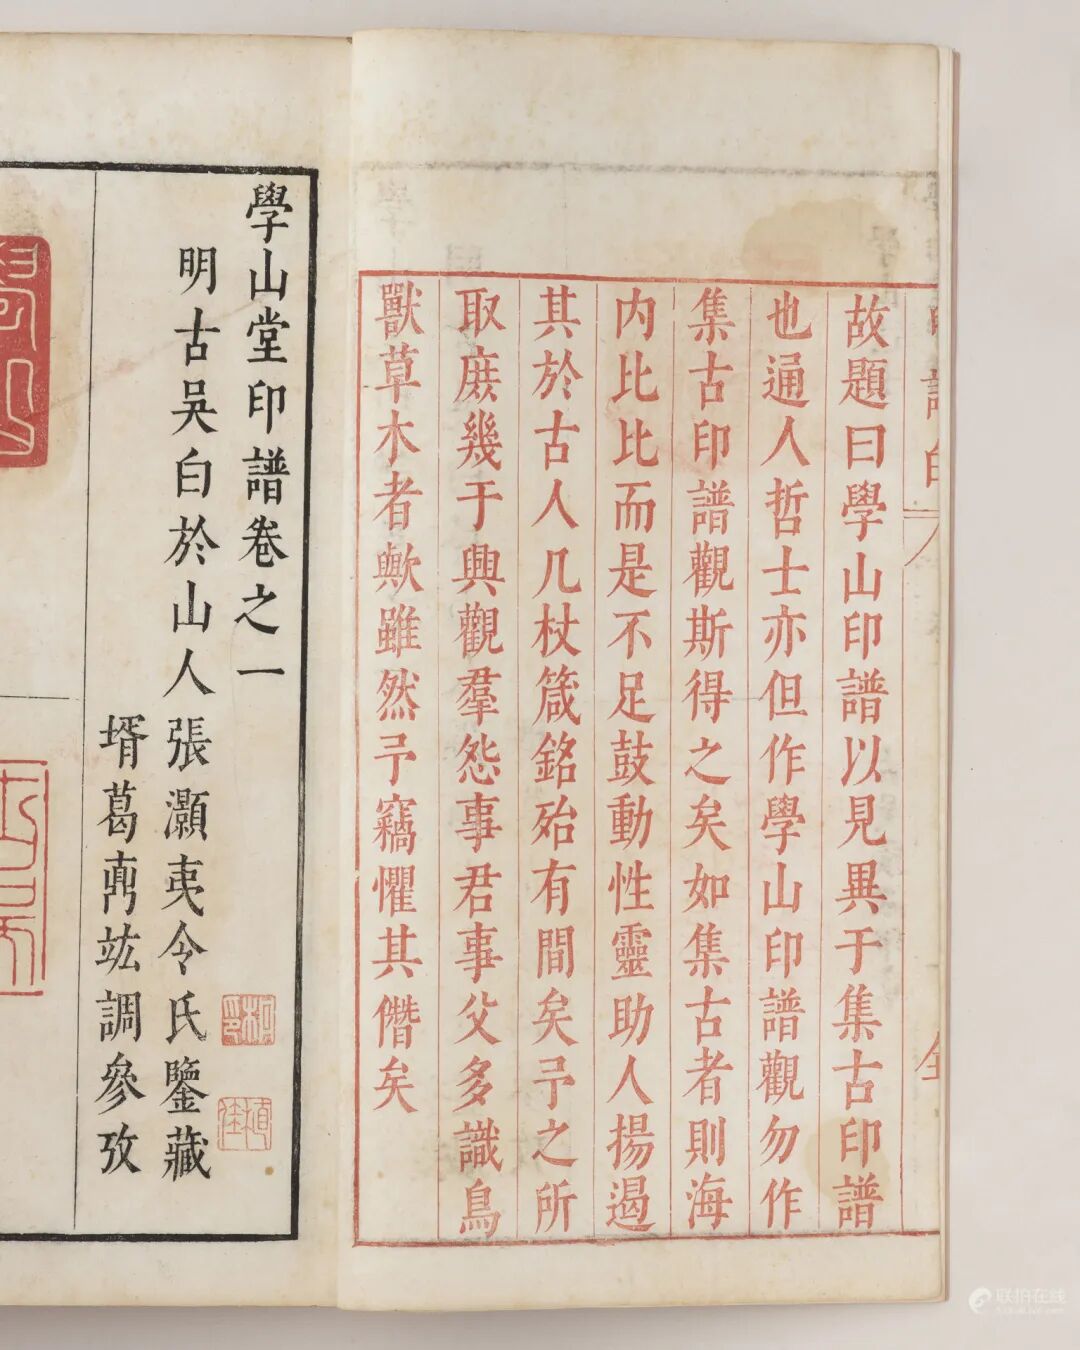 故題曰學山印譜以見異于集古印譜
也通人哲士亦但作學山印譜觀勿作
集古印譜觀斯得之矣如集古者則海
内比比而是不足鼓動性靈助人揚遏
其於古人几杖箴銘殆有間矣予之所
取庶幾于興觀羣怨事君事父多識鳥
獸草木者歟雖然予竊懼其僭矣
學山堂印譜卷之一
明古吳白於山人張灝夷令氏鑒藏
壻葛竑調參攷
联拍在线